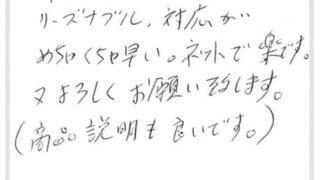 リーズナブル、対広が
めちゃくちゃ早い。ネットで楽です。
又よろしくお願い致します。
(商品説明も良いです。)